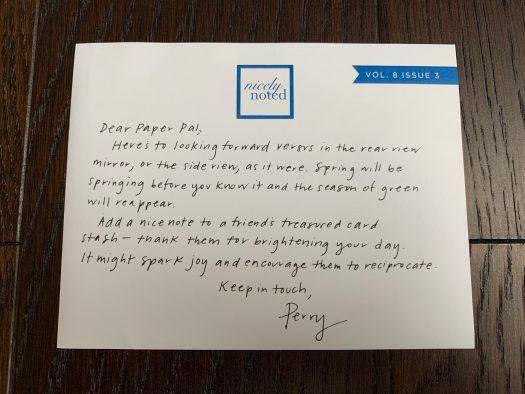 nicely
noted
VOL. 8 ISSUE 3
Dear Paper Pal,
Here's to looking forward versus in the rear view
mirror, or the side view, as it were. Spring will be
springing before you know it and the season of green
will reappear.
Add a nice note to a friend's treasured card
stash — thank them for brightening your day.
It might spark joy and encourage them to reciprocate.
Keep in touch,
Perry